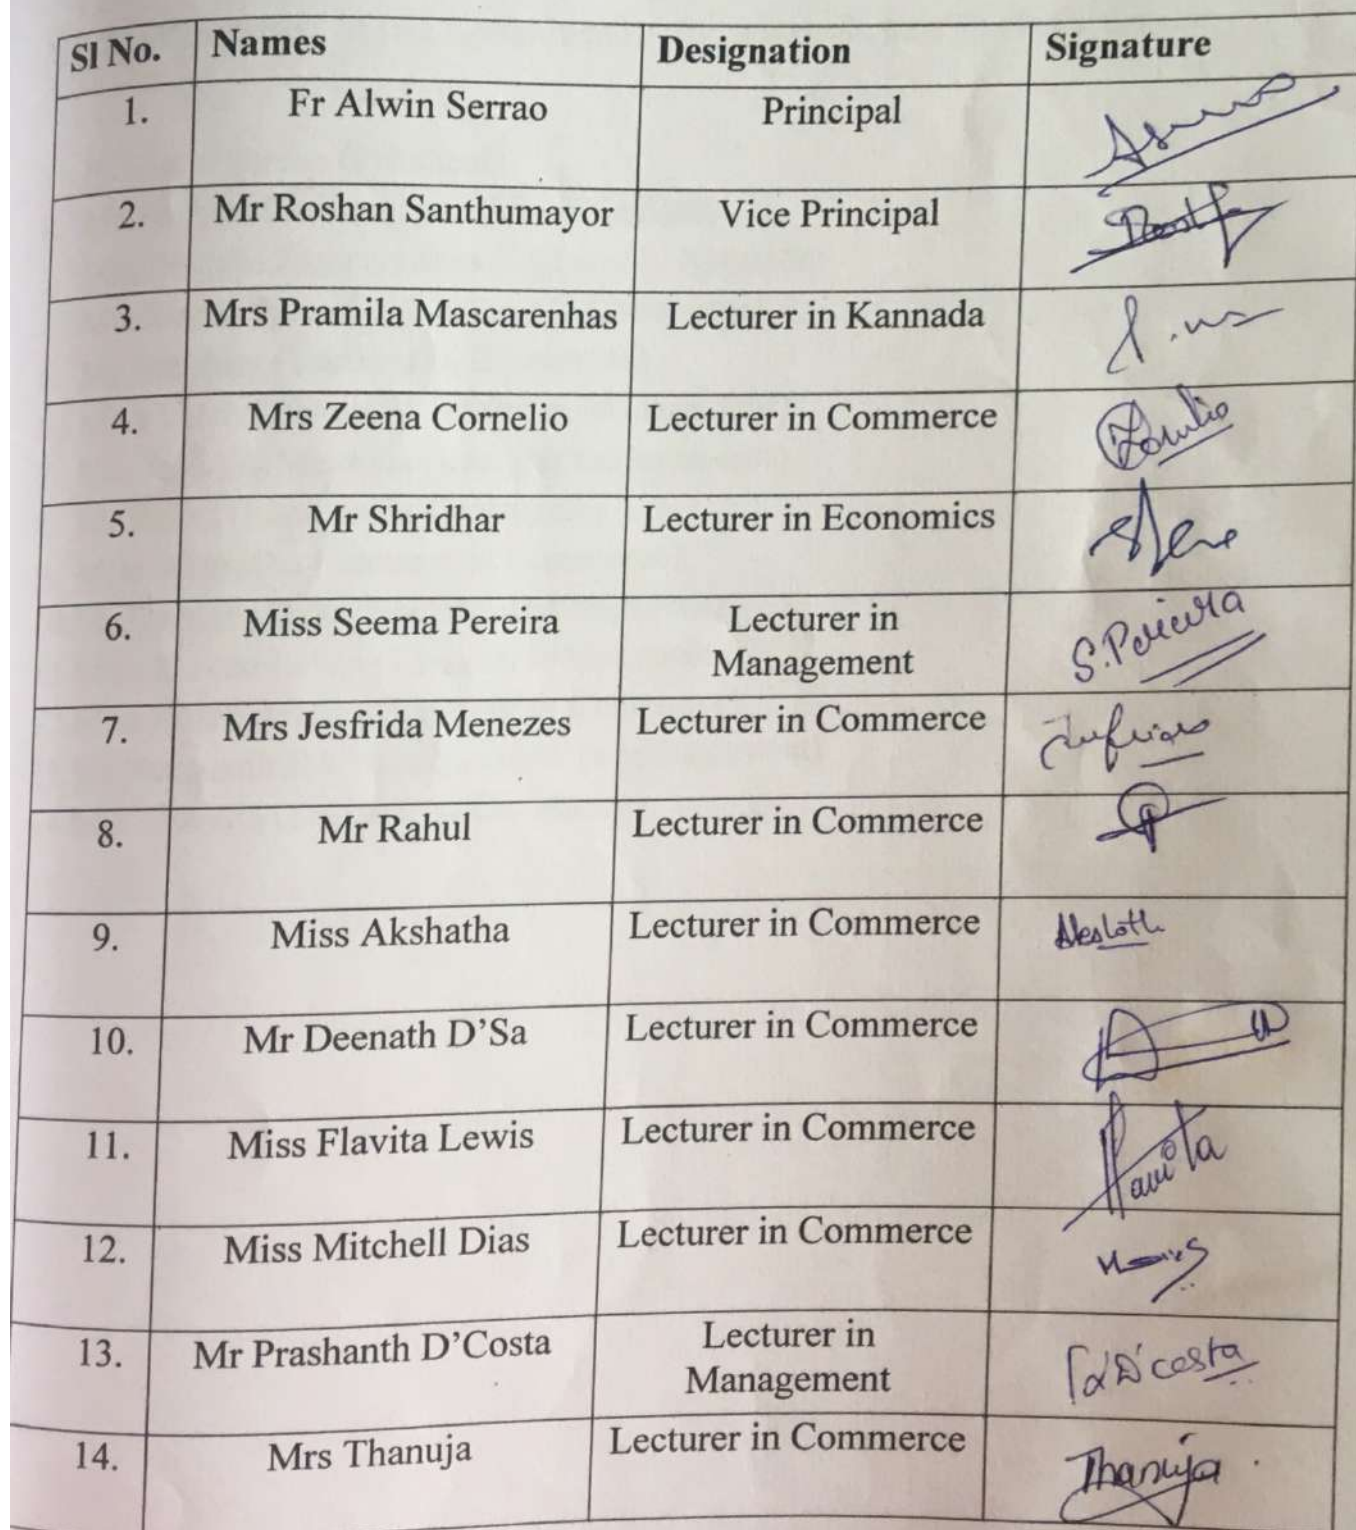 Sl No. Names Designation Signature
1. Fr Alwin Serrao Principal
2. Mr Roshan Santhumayor Vice Principal
3. Mrs Pramila Mascarenhas Lecturer in Kannada
4. Mrs Zeena Cornelio Lecturer in Commerce
5. Mr Shridhar Lecturer in Economics
6. Miss Seema Pereira Lecturer in S.Pereira
Management
7. Mrs Jesfrida Menezes Lecturer in Commerce
8. Mr Rahul Lecturer in Commerce
9. Miss Akshatha Lecturer in Commerce
10. Mr Deenath D’Sa Lecturer in Commerce
11. Miss Flavita Lewis Lecturer in Commerce Flavita
12. Miss Mitchell Dias Lecturer in Commerce
13. Mr Prashanth D’Costa Lecturer in D'costa
Management
14. Mrs Thanuja Lecturer in Commerce Thanuja